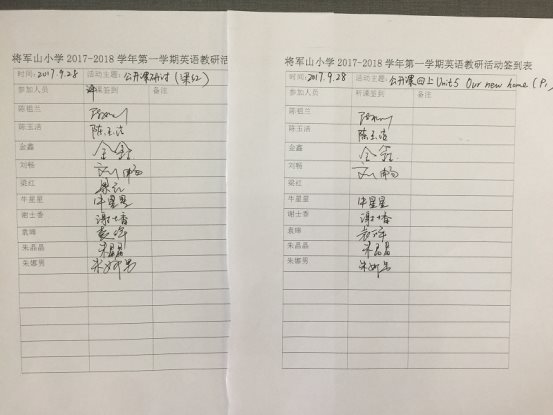 将军山小学 2017-2018 学年第一学期英语教研活
时间:2017.9.28 活动主题:公开课研讨(梁红)
参加人员 评课签到 备注
陈祖兰
陈玉洁 陈玉洁
金鑫 金鑫
刘畅 刘畅
梁红 梁红
牛星星 牛星星
谢士香 谢士香
袁晞 袁晞
朱晶晶 朱晶晶
朱娜男 朱娜男
将军山小学 2017-2018 学年第一学期英语教研活动签到表
时间:2017.9.28 活动主题:公开课四上Unit5 Our new home (P1
参加人员 听课签到 备注
陈祖兰
陈玉洁 陈玉洁
金鑫 金鑫
刘畅 刘畅
梁红
牛星星 牛星星
谢士香 谢士香
袁晞 袁晞
朱晶晶 朱晶晶
朱娜男 朱娜男